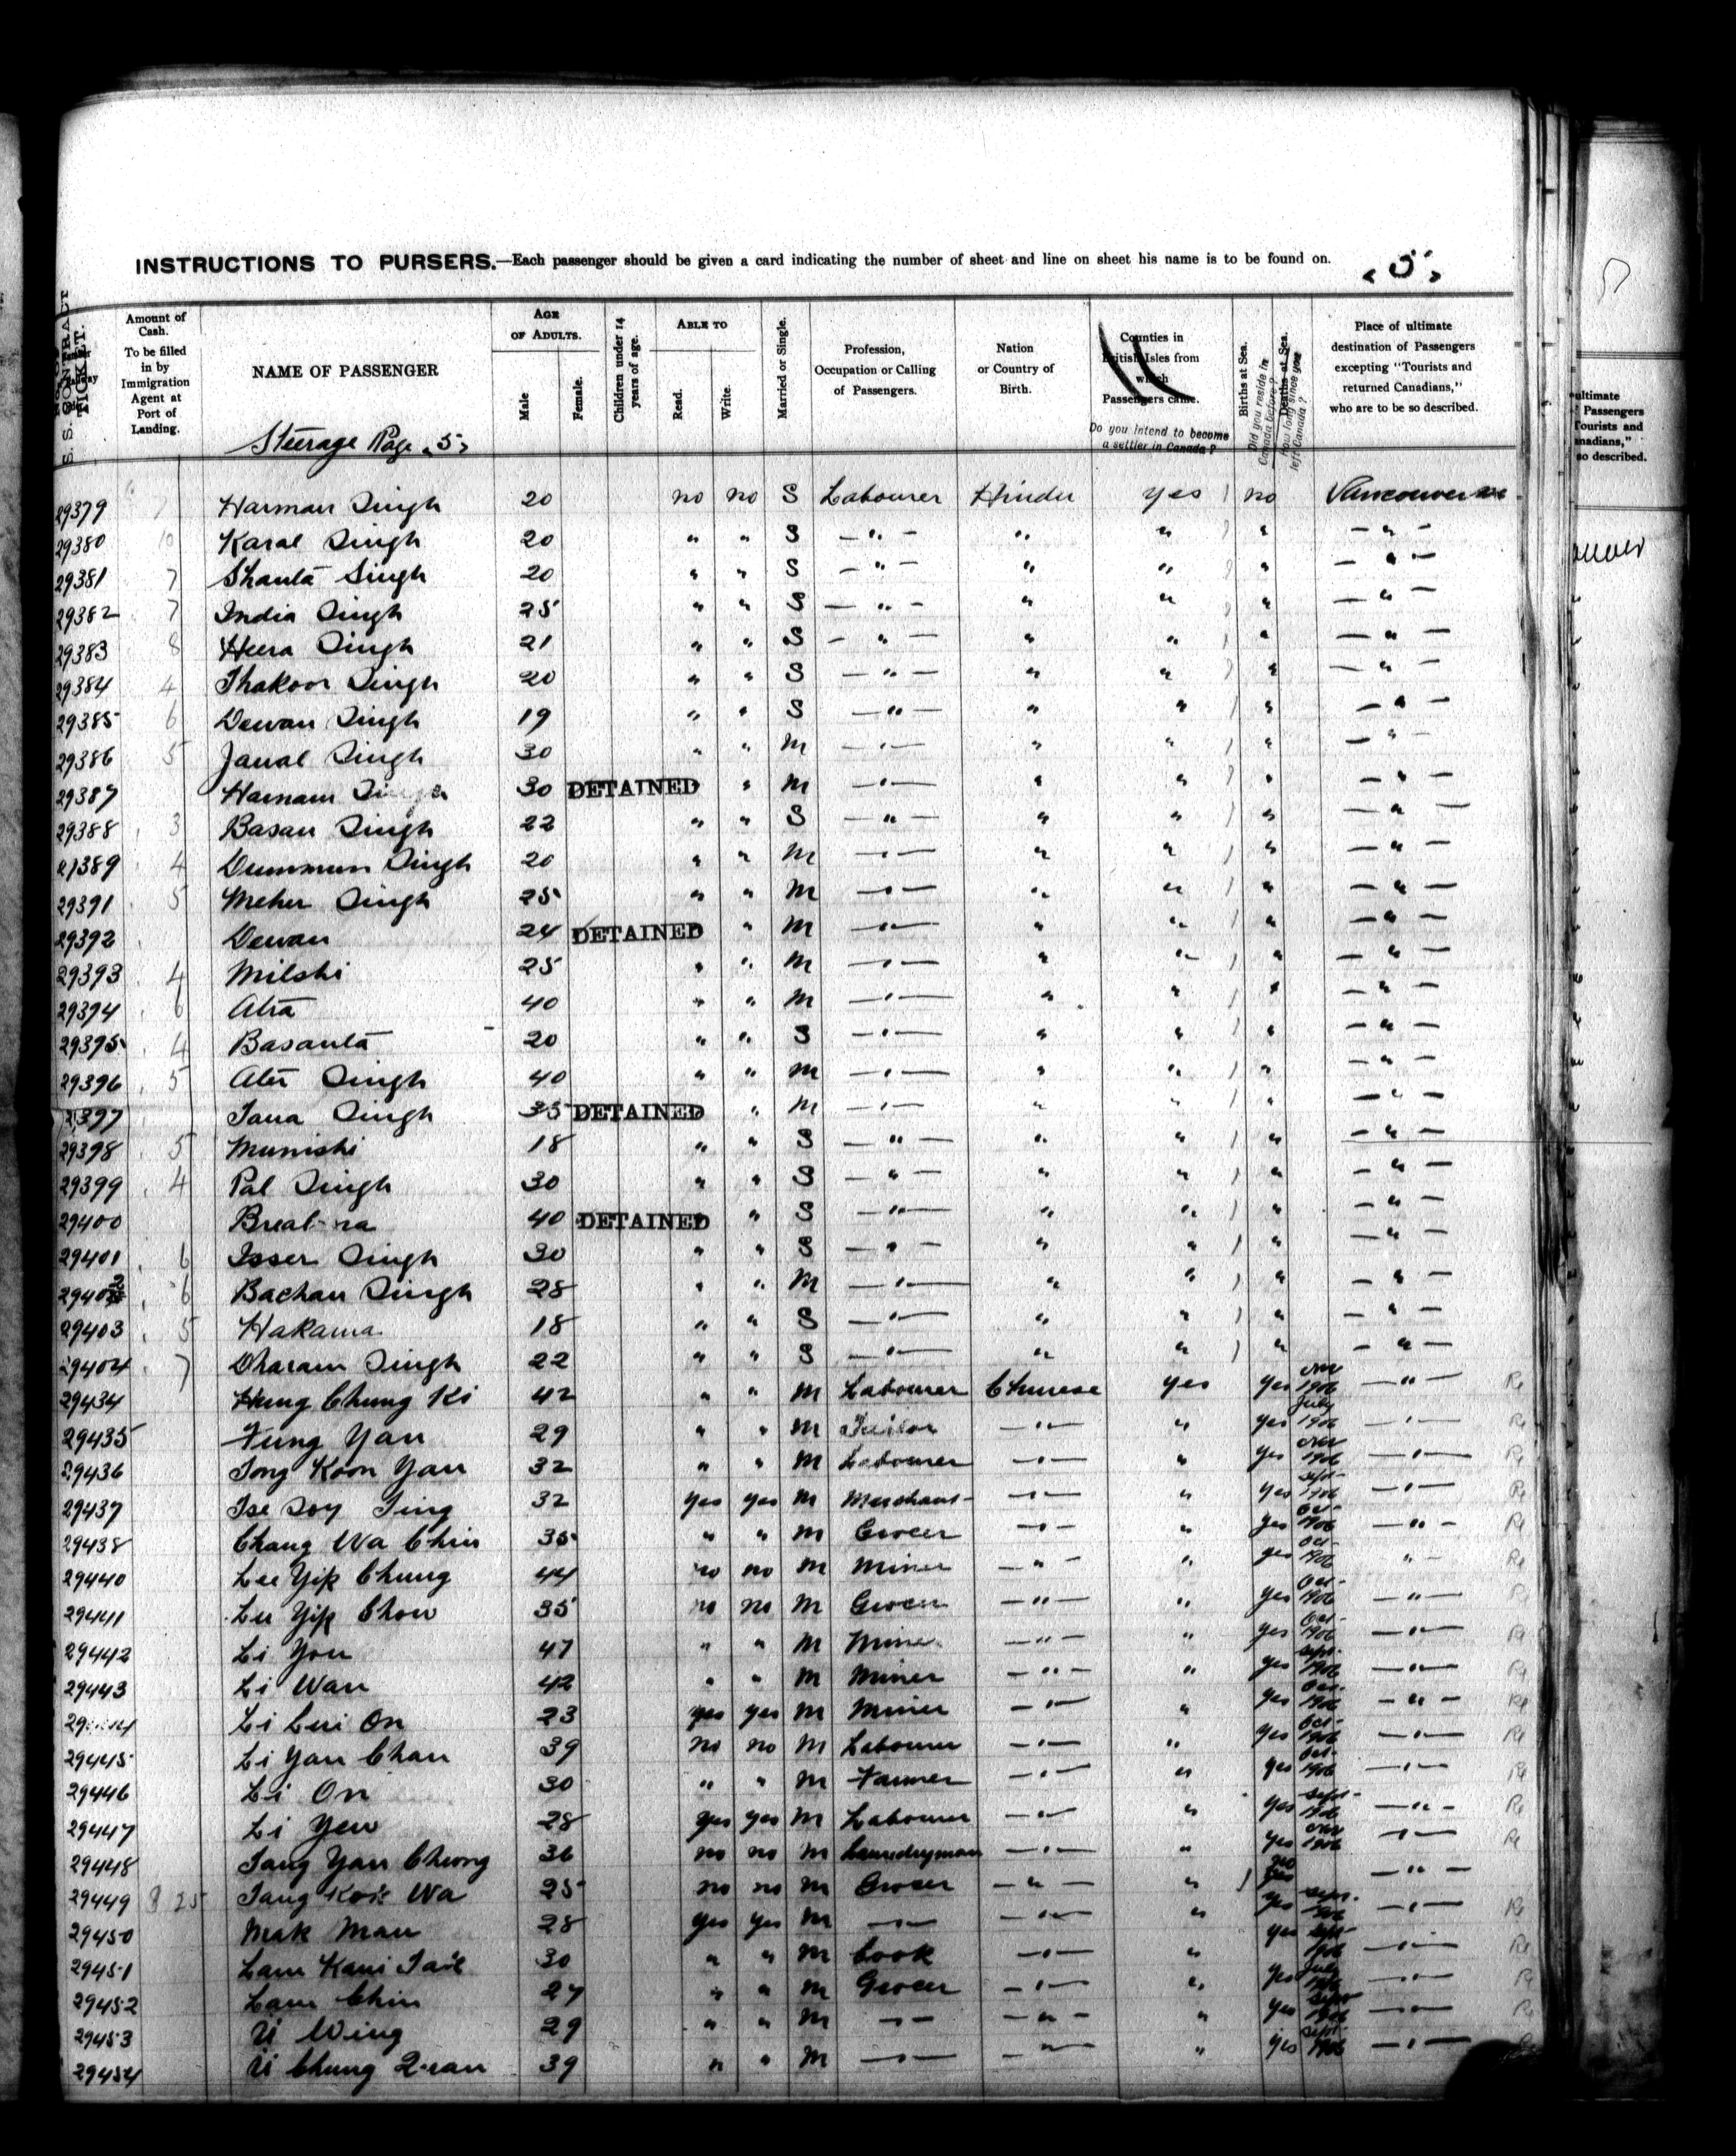 INSTRUCTIONS TO PURSERS.—Each passenger should be given a card indicating the number of sheet and line on sheet his name is to be found on.
"5"
S. S. CONTRACT TICKET.
Amount of Cash. To be filled in by Immigration Agent at Port of Landing.
NAME OF PASSENGER
Steerage Page "5"
AGE OF ADULTS.
Male
Female.
Children under 14 years of age.
ABLE TO
Read.
Write.
Married or Single.
Profession, Occupation or Calling of Passengers.
Nation or Country of Birth.
Counties in British Isles from which Passengers came.
Do you intend to become a settler in Canada?
Births at Sea.
Did you reside in Canada before?
Deaths at Sea.
how long since you left Canada?
Place of ultimate destination of Passengers excepting "Tourists and returned Canadians," who are to be so described.
29379 7 Harman Singh 20 no no S Labourer Hindu yes 1 no Vancouver
29380 10 Karal Singh 20 " " S — " — " " 1 " — " —
29381 7 Shanta Singh 20 " " S — " — " " 1 " — " —
29382 7 India Singh 25 " " S — " — " " 1 " — " —
29383 8 Heera Singh 21 " " S — " — " " 1 " — " —
29384 4 Thakoor Singh 20 " " S — " — " " 1 " — " —
29385 6 Dewan Singh 19 " " S — " — " " 1 " — " —
29386 5 Jawal Singh 30 " " M — " — " " 1 " — " —
29387 Harnam Singh 30 DETAINED " M — " — " " 1 " — " —
29388 3 Basan Singh 22 " " S — " — " " 1 " — " —
29389 4 Dummun Singh 20 " " M — " — " " 1 " — " —
29391 5 Meher Singh 25 " " M — " — " " 1 " — " —
29392 Dewan 24 DETAINED " M — " — " " 1 " — " —
29393 4 Milshi 25 " " M — " — " " 1 " — " —
29394 6 Atra 40 " " M — " — " " 1 " — " —
29395 4 Basanta 20 " " S — " — " " 1 " — " —
29396 5 Ater Singh 40 " " M — " — " " 1 " — " —
29397 Tana Singh 35 DETAINED " M — " — " " 1 " — " —
29398 5 Munishi 18 " " S — " — " " 1 " — " —
29399 4 Pal Singh 30 " " S — " — " " 1 " — " —
29400 40 DETAINED " S — " — " " 1 " — " —
29401 6 Isser Singh 30 " " S — " — " " 1 " — " —
29402 6 Bachan Singh 28 " " M — " — " " 1 " — " —
29403 5 Hakama 18 " " S — " — " " 1 " — " —
29404 7 Dharam Singh 22 " " S — " — " " 1 " — " —
29434 Hung Chung Ki 42 " " M Labourer Chinese yes yes Nov 1906 — " —
29435 Fung Yan 29 " " M Tailor — " — " yes July 1906 — " —
29436 Tong Koon Yan 32 " " M Labourer — " — " yes Nov 1906 — " —
29437 Tse Soy Ting 32 yes yes M Merchant — " — " yes Sept 1906 — " —
29438 Chang Wa Chin 35 " " M Grocer — " — " yes Oct 1906 — " —
29440 Lee Yip Chung 44 no no M Miner — " — " yes Oct 1906 " —
29441 Lu Yip Chow 35 no no M Grocer — " — " yes Oct 1906 — " —
29442 Li You 47 " " M Miner — " — " yes Oct 1906 — " —
29443 Li Wan 42 " " M Miner — " — " yes Sept 1906 — " —
Li Lui On 23 yes yes M Miner — " — " yes Oct 1906 — " —
29445 Li Yan Chan 39 no no M Labourer — " — " yes Oct 1906 — " —
29446 Li On 30 " " M Farmer — " — " yes Oct 1906 — " —
29447 Li Yew 28 yes yes M Labourer — " — " yes Sept 1906 — " —
29448 Tang Yan Cheong 36 no no M Laundryman — " — " yes Nov 1906 — " —
29449 8 25 Tang Wa 25 no no M Grocer — " — " 1 no — " —
29450 Mak Man 28 yes yes M — " — — " — " yes Sept 1906 — " —
29451 Lam Kam 30 " " M Cook — " — " yes Sept 1906 — " —
29452 Lam Chin 27 " " M Grocer — " — " yes July 1906 — " —
29453 U Wing 29 " " M — " — — " — " yes Sept 1906 — " —
29454 U Chung 39 " " M — " — — " — " yes Sept 1906 — " —
ultimate
Passengers
Tourists and
anadians,"
so described.
ouver